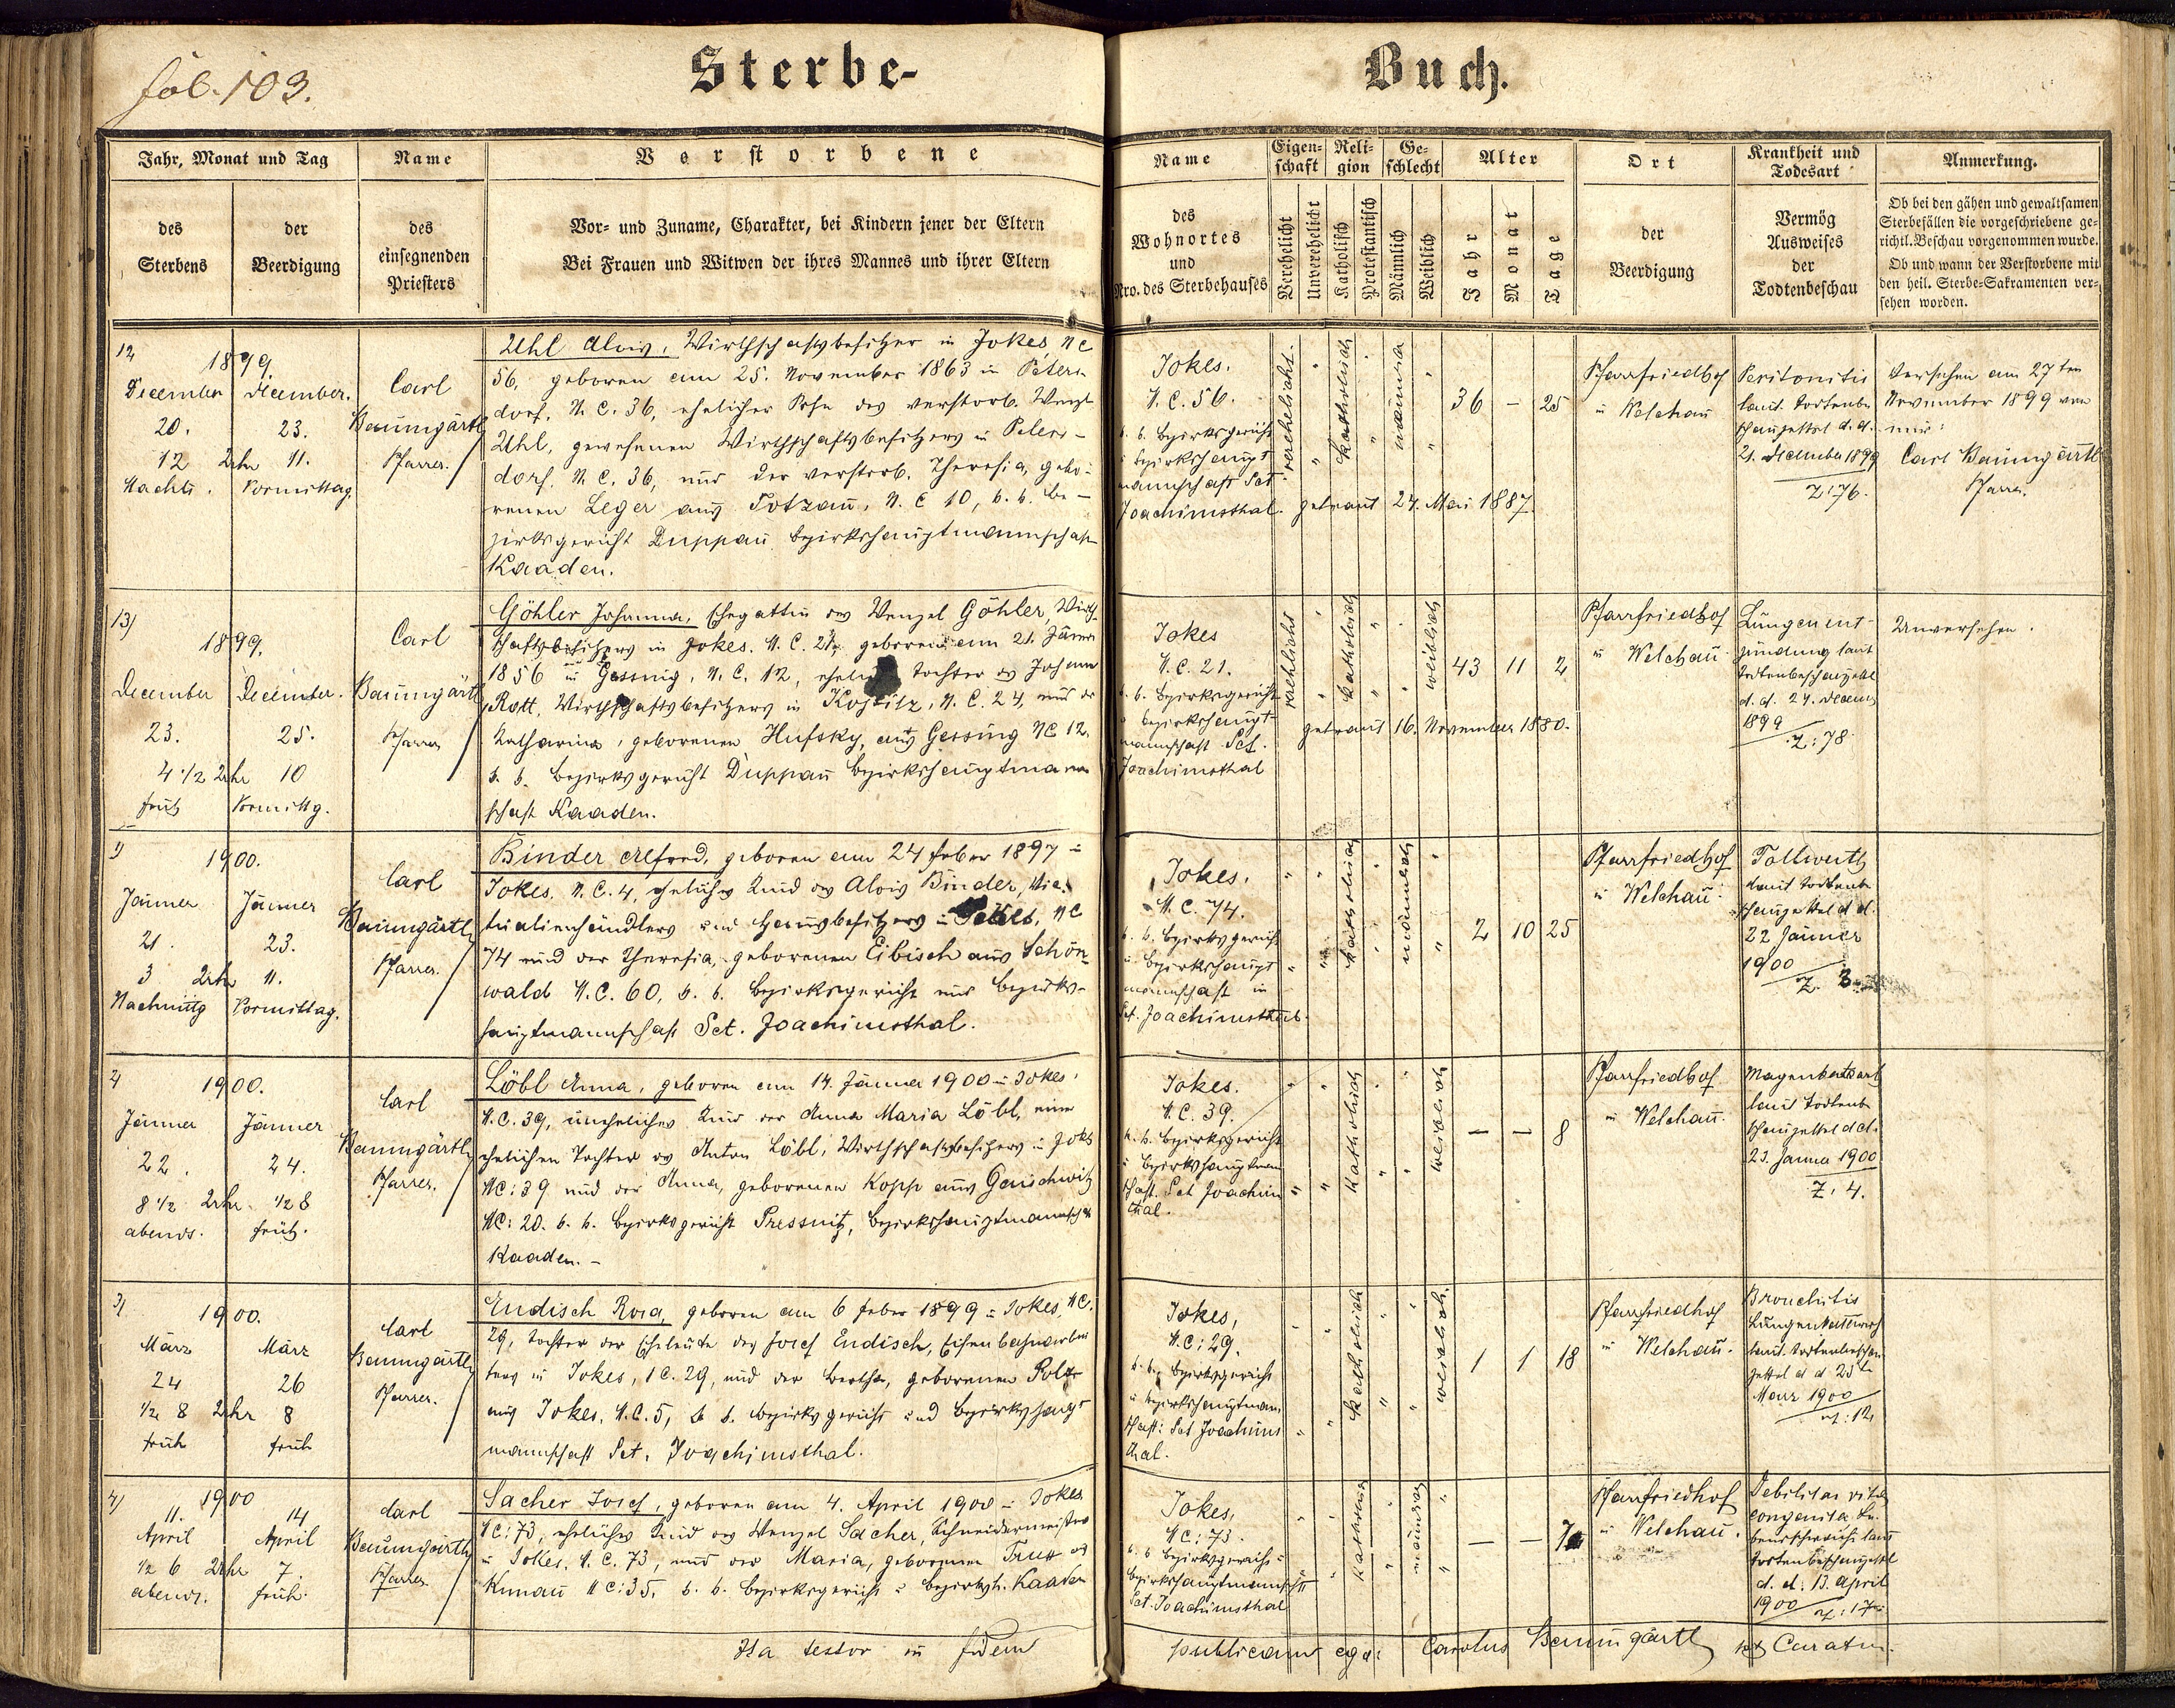 fol. 103.
Sterbe-
Buch.
Jahr, Monat und Tag
des Sterbens
der Beerdigung
Name
des
einsegnenden
Priesters
Verstorbene
Vor- und Zuname, Charakter, bei Kindern jener der Eltern
Bei Frauen und Witwen der ihres Mannes und ihrer Eltern
Name
des
Wohnortes
und
Nro. des Sterbehauses
Eigen-
schaft
Verehelicht
Unverehelicht
Reli-
gion
Katholisch
Protestantisch
Ge-
schlecht
Männlich
Weiblich
Alter
Jahr
Monat
Tage
Ort
der
Beerdigung
Krankheit und
Todesart
Vermög
Ausweises
der
Todtenbeschau
Anmerkung.
Ob bei den gähen und gewaltsamen
Sterbefällen die vorgeschriebene ge-
richtl. Beschau vorgenommen wurde.
Ob und wann der Verstorbene mit
den heil. Sterbe-Sakramenten ver-
sehen worden.
12
1899.
December
20.
12 Uhr
Nachts.
December.
23.
11.
Vormittag
Carl
Baumgärtl
Pfarrer.
Uhl Alois, Wirthschaftsbesitzer in Jokes, NC
56, geboren am 25. November 1863 in Peters-
dorf, N.C. 36, ehelicher Sohn des verstorb. Wenzl
Uhl, gewesenen Wirthschaftsbesitzers in Peters-
dorf. N.C. 36, und der verstorb. Theresia, gebo-
renen Leger aus Totzau, N.C 10, k.k. Be-
zirksgericht Duppau Bezirkshauptmannschaft
Kaaden.
Jokes.
N.C. 56.
k. k. Bezirksgericht
u Bezirkshaupt
mannschaft Sct.
Joachimsthal.
verehelicht.
katholisch
männlich
36 - 25
getraut 24. Mai 1887
Pfarrfriedhof
in Welchau
Peritonitis
laut. Todtenbe
schauzettel d.d.
21. December 1899
Z: 76.
Versehen am 27ten
November 1899 von
mir:
Carl Baumgärtl
Pfarrer.
13)
1899.
December
23.
4 1/2 Uhr
früh
December.
25.
10
Vormittg.
Carl
Baumgärtl
Pfarrer
Göhler Johanna, Ehegattin des Wenzel Göhler, Wirth-
schaftsbesitzers in Jokes. N.C. 21, geboren am 21. Jänner
1856 in Gessing, N.C. 12, ehel Tochter des Johann
Rott, Wirthschaftsbesitzers in Kostitz, N.C. 24, und der
Katharina, geborenen Hufsky, aus Gessing NC 12.
k. k. Bezirksgericht Duppau Bezirkshauptmann
schaft Kaaden.
Jokes
N.C. 21.
k. k. Bezirksgericht
u Bezirkshaupt-
mannschaft Sct.
Joachimsthal
verehlicht
katholisch
weiblich
43 11 2
getraut 16. November 1880.
Pfarrfriedhof
in Welchau
Lungenent-
zündung laut
Todtenbeschauzettel
d. d. 24. Decemb
1899
Z: 78
Unversehen.
1)
1900.
Jänner
21.
3 Uhr
Nachmittg
Jänner
23.
11.
Vormittag.
Carl
Baumgärtl
Pfarrer.
Binder Alfred, geboren am 24 Feber 1897 in
Jokes. N.C. 4, eheliches Kind des Alois Binder, Vic-
tualienhändlers und Hausbesitzers in Jokes, NC
74 und der Theresia, geborenen Eibisch aus Schön-
wald N.C. 60, k. k. Bezirksgericht und Bezirks-
hauptmannschaft Sct. Joachimsthal.
Jokes.
N.C. 74.
k. k. Bezirksgericht
u. Bezirkshaupt
mannschaft in
Sct. Joachimsthal.
katholisch
männlich
2 10 25
Pfarrfriedhof
in Welchau
Tollwuth
laut Todtenbe
schauzettel d d.
22 Jänner
1900
Z. 3
2)
1900.
Jänner
22.
8 1/2 Uhr
abends.
Jänner
24.
1/2 8
früh.
Carl
Baumgärtl
Pfarrer.
Löbl Anna, geboren am 14. Jänner 1900 in Jokes,
N.C. 39, uneheliches Kind der Anna Maria Löbl, einer
ehelichen Tochter des Anton Löbl, Wirthschaftsbesitzers in Jokes
NC: 39 und der Anna, geborenen Kopp aus Genschwitz
NC: 20. k. k. Bezirksgericht Pressnitz, Bezirkshauptmannschaft
Kaaden. -
Jokes.
N.C. 39.
k. k. Bezirksgericht
u Bezirkshauptman
schaft. Sct Joachims
thal.
katholisch
weiblich
- - 8
Pfarrfriedhof
in Welchau.
laut Todtenbe
schauzettel dd.
23. Jänner 1900
Z. 4.
3)
1900.
März
24
1/2 8 Uhr
früh
März
26
8
früh
Carl
Baumgärtl
Pfarrer.
Endisch Rosa, geboren am 6 Feber 1899 in Jokes, NC.
29, Tochter der Eheleute des Josef Endisch, Eisenbahnarbei
ters in Jokes, NC. 29, und der Bertha, geborenen
aus Jokes. N.C. 5, k k. Bezirksgericht und Bezirkshaupt
mannschaft Sct. Joachimsthal.
Jokes,
N.C: 29.
k. k. Bezirksgericht
u Bezirkshauptman
schaft: Sct Joachims
thal.
katholisch
weiblich.
1 1 18
Pfarrfriedhof
in Welchau.
Bronchitis
laut. Todtenbeschau
zettel d d 25t
März 1900
Z: 12
4)
1900
11.
April
1/2 6 Uhr
abends.
14
April
7.
früh.
Carl
Baumgärtl
Pfarrer
Sacher Josef, geboren am 4. April 1900 in Jokes
NC: 73, eheliches Kind des Wenzel Sacher, Schneidermeisters
in Jokes. N.C. 73, und der Maria, geborenen aus
Kunau NC: 35, k. k. Bezirksgericht u Bezirksh. Kaaden
Jokes,
NC: 73.
k. k Bezirksgericht u
Bezirkshauptmannschft
Sct. Joachimsthal
katholisch
männlich
- - 7
Pfarrfriedhof
in Welchau.
Debilitas vitae
congenita. Le-
bensschwäche laut
Todtenbeschauzettel
d. d. 13. April
1900 Z: 17
Ita testor in fidem
publicam ego: Carolus Baumgärtl Curatus.